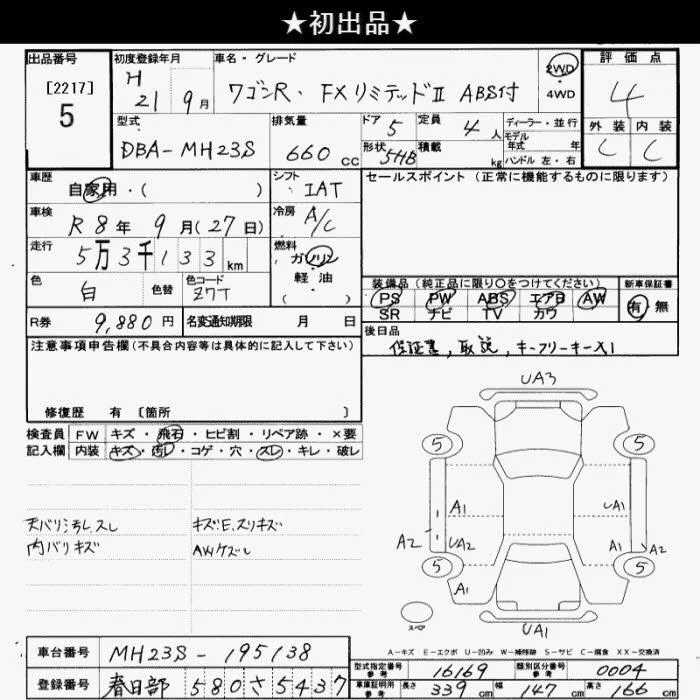 ★初出品★
出品番号 [2217] 5
初度登録年月 H 21年 9月
車名・グレード ワゴンR、FXリミテッドⅡ ABS付
2WD
4WD
評価点 4
外装 内装
C C
型式 DBA-MH23S
排気量 660 cc
ドア 5 定員 4 人
形状 5HB 積載 kg
ディーラー・並行
モデル年式 年式
ハンドル 左・右
車歴 自家用・( )
シフト IAT
車検 R 8年 9月(27日)
冷房 A/C
走行 5万3千133km
燃料 ガソリン 軽油 ( )
色 白 色替 色コード Z7T
R券 9,880円 名変通知期限 月 日
セールスポイント(正常に機能するものに限ります)
装備品(純正品に限り○をつけてください) 新車保証書
PS PW ABS エアB AW 有 無
SR ナビ TV カワ
後日品
保証書, 取説, キーフリーキーX1
注意事項申告欄(不具合内容等は具体的に記入して下さい)
修復歴 有 〔箇所 〕
検査員 FW キズ・飛石・ヒビ割・リペア跡・×要
記入欄 内装 キズ・汚レ・コゲ・穴・スレ・キレ・破レ
天バリ汚レ、スレ キズE、スリキズ
内バリキズ AWケズレ
UA3
5 5
A1 UA1
A2 UA2 A1 A2
5 5
A1
UA1
スペア
A-キズ E-エクボ U-凹み W-補修跡 S-サビ C-腐食 XX-交換済
車台番号 MH23S-195138
登録番号 春日部 580 さ 5437
型式指定番号 参考 16169 類別区分番号 参考 0004
車庫証明用 参考 長さ 339cm 幅 147cm 高さ 166cm